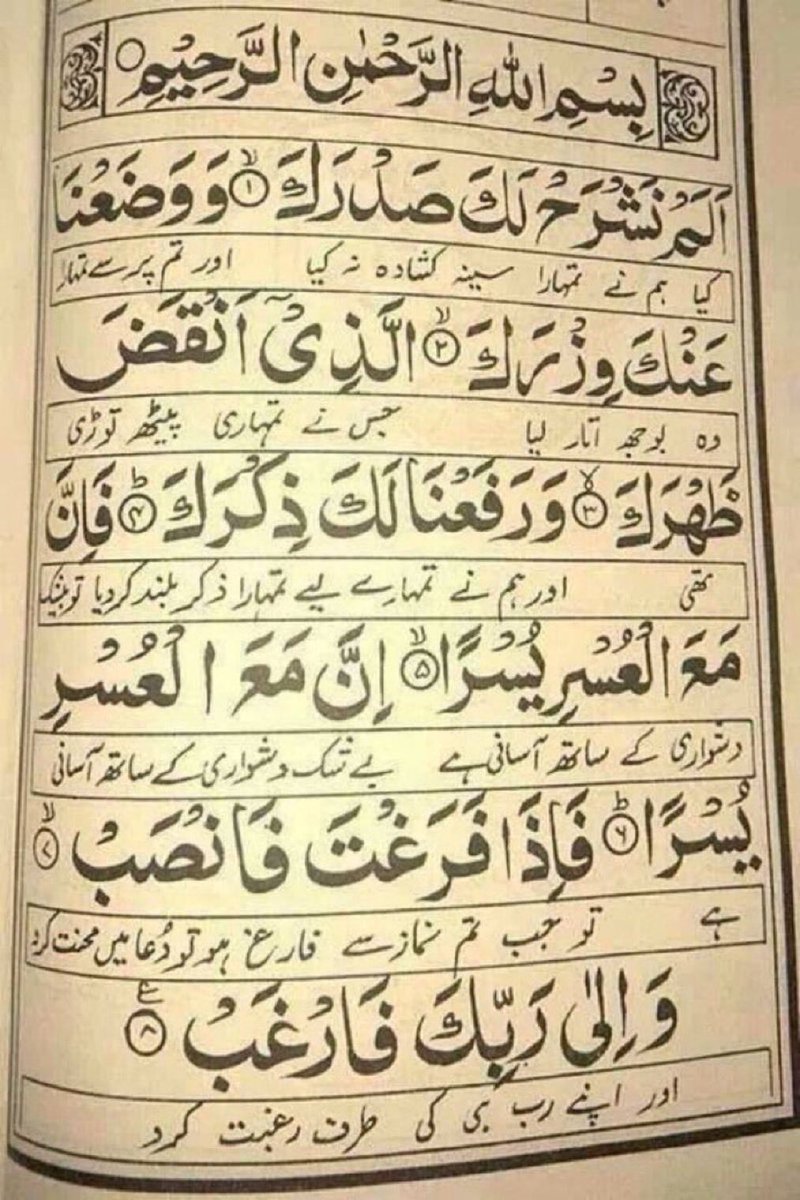 بِسْمِ اللهِ الرَّحْمٰنِ الرَّحِيْمِ ○
اَلَمْ نَشْرَحْ لَكَ صَدْرَكَ ۙ﴿۱﴾ وَوَضَعْنَا
کیا ہم نے تمہارا سینہ کشادہ نہ کیا اور تم پر سے تمہارا
عَنْكَ وِزْرَكَ ۙ﴿۲﴾ الَّذِيْۤ اَنْقَضَ
وہ بوجھ اتار لیا جس نے تمہاری پیٹھ توڑی
ظَهْرَكَ ۙ﴿۳﴾ وَرَفَعْنَا لَكَ ذِكْرَكَ ؕ﴿۴﴾ فَاِنَّ
تھی اور ہم نے تمہارے لیے تمہارا ذکر بلند کر دیا تو بیشک
مَعَ الْعُسْرِ يُسْرًا ۙ﴿۵﴾ اِنَّ مَعَ الْعُسْرِ
دشواری کے ساتھ آسانی ہے بے شک دشواری کے ساتھ آسانی
يُسْرًا ؕ﴿۶﴾ فَاِذَا فَرَغْتَ فَانْصَبْ ۙ﴿۷﴾
ہے تو جب تم نماز سے فارغ ہو تو دُعا میں محنت کرو
وَاِلٰى رَبِّكَ فَارْغَبْ ﴿۸﴾ ع
اور اپنے رب ہی کی طرف رغبت کرو